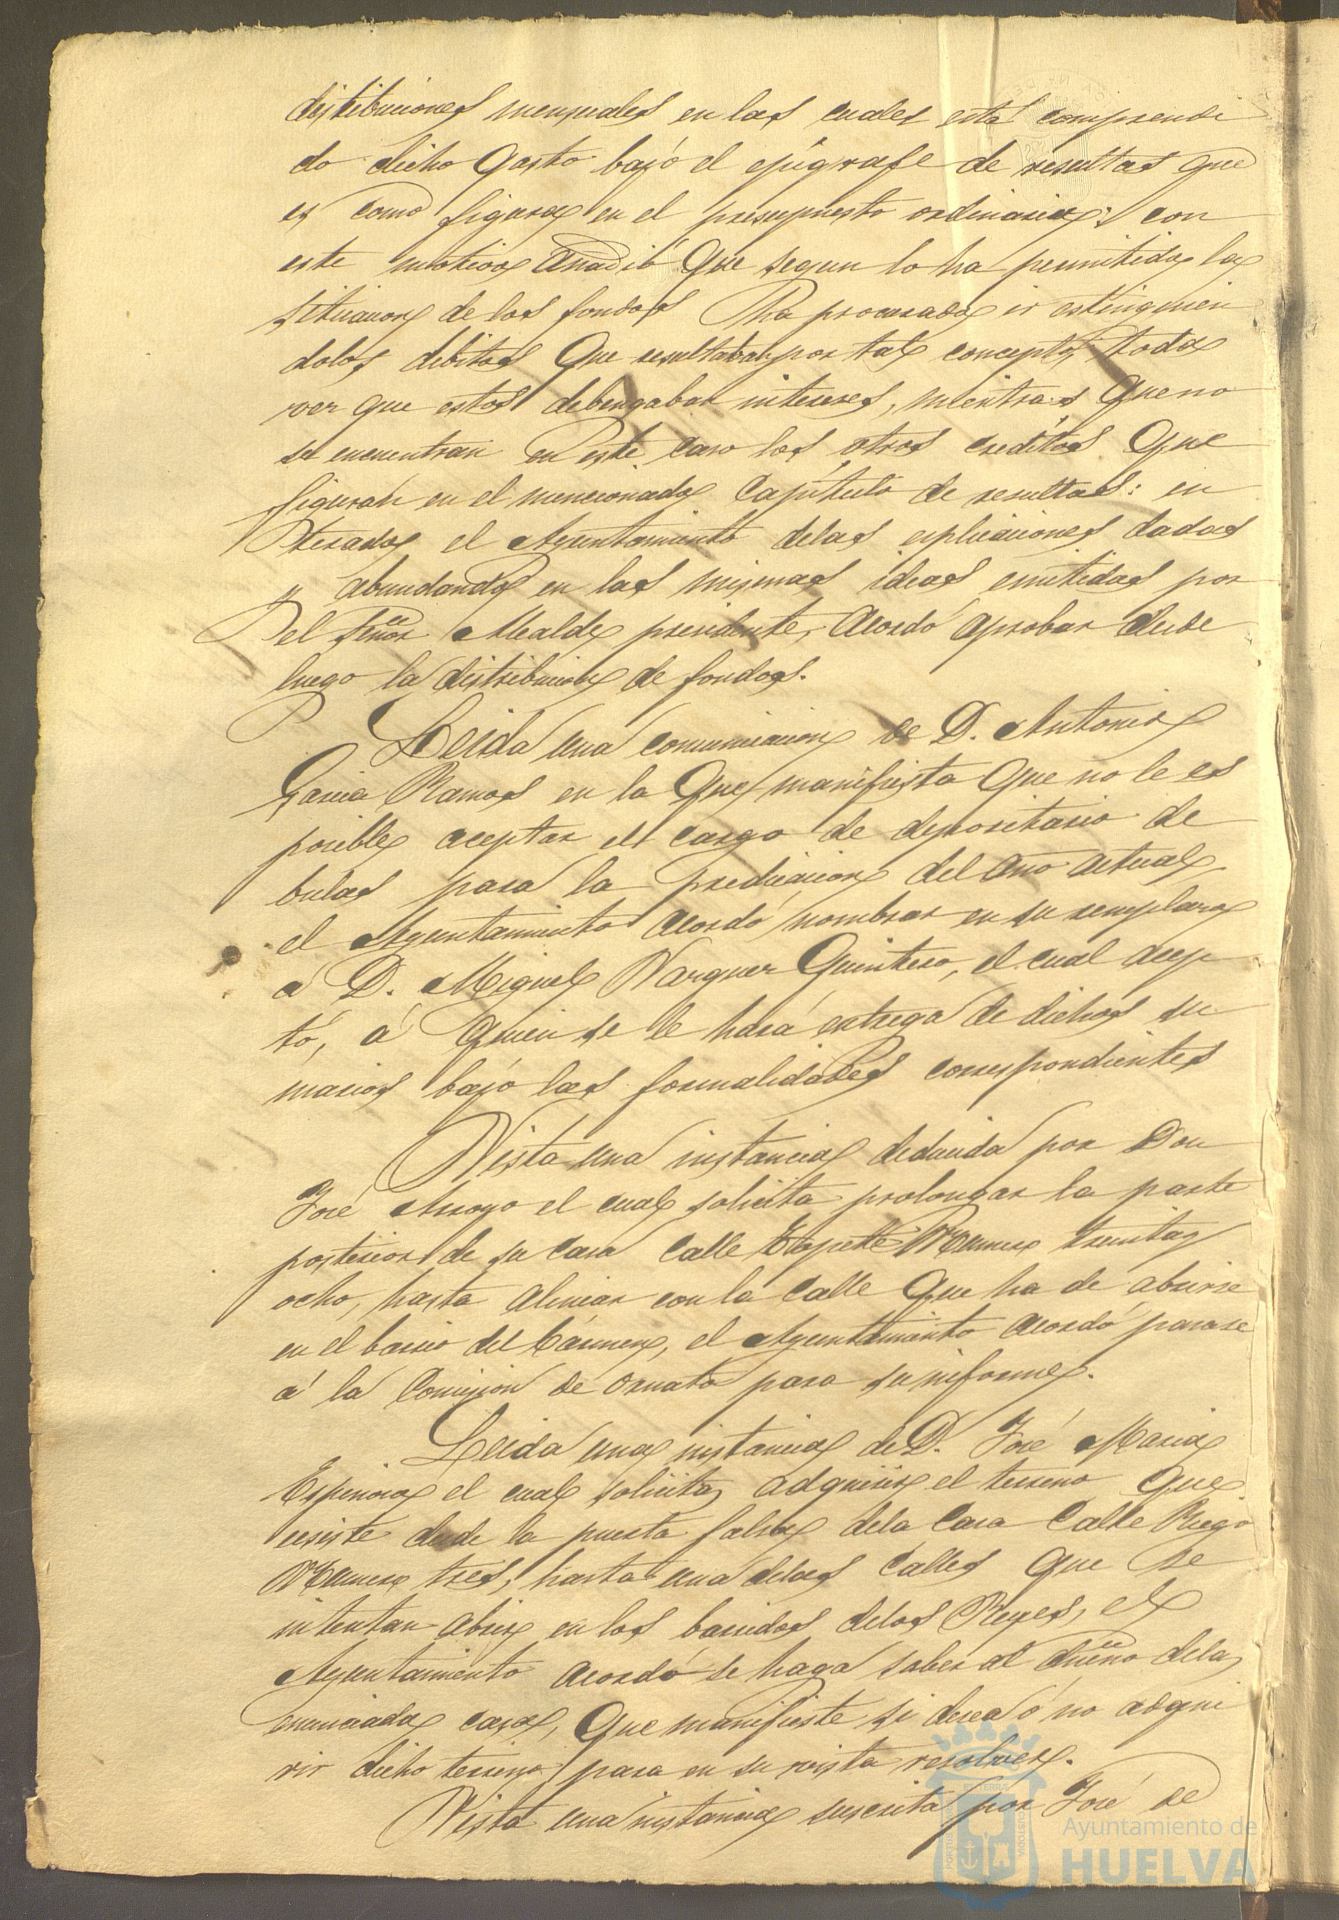 distribuciones mensuales en las cuales está comprendi
do dicho gasto bajo el epígrafe de resultas que
es como figara en el presupuesto ordinario; con
este motivo añadió que segun lo ha permitido la
situacion de los fondos ha procurado ir estinguien
dolos débitos que resultaban por tal concepto, toda
vez que estos debengaban intereses, mientras que no
se encuentran en este caso los otros creditos que
figuran en el mencionado Capítulo de resultas: en
terado el Ayuntamiento delas esplicaciones dadas
y abundando en las mismas ideas emitidas por
el Señor Alcalde presidente, acordó aprobar desde
luego la distribucion de fondos.
Leida una comunicacion de D. Antonio
Garcia Ramos en la que manifiesta que no le es
posible aceptar el cargo de depositario de
bulas para la predicacion del año actual,
el Ayuntamiento acordó nombrar en su remplazo
á D. Miguel Vazquez Quintero, el cual acep
tó, á quien se le hará entrega de dichos su
marios bajo las formalidades correspondientes
Vista una instancia deducida por Don
José Arroyo el cual solicita prolongar la parte
posterior de su casa calle Numero treinta y
ocho, hasta alinear con la calle que ha de abrirse
en el barrio del Cármen, el Ayuntamiento acordó parase
á la Comision de Ornato para su informe.
Leida una instancia de D. José Maria
Espinosa el cual solicita adquirir el terreno que
ecsiste desde la puerta falsa dela Casa Calle Riego
Numero tres, hasta una delas Calles que se
intentan abrir en los delos Reyes, el
Ayuntamiento acordó se haga saber al dueño dela
enunciada casa, que manifieste si desea ó no adqui
rir dicho terreno para en su vista resolver.
Vista una instancia suscrita por José de
Ayuntamiento de
HUELVA